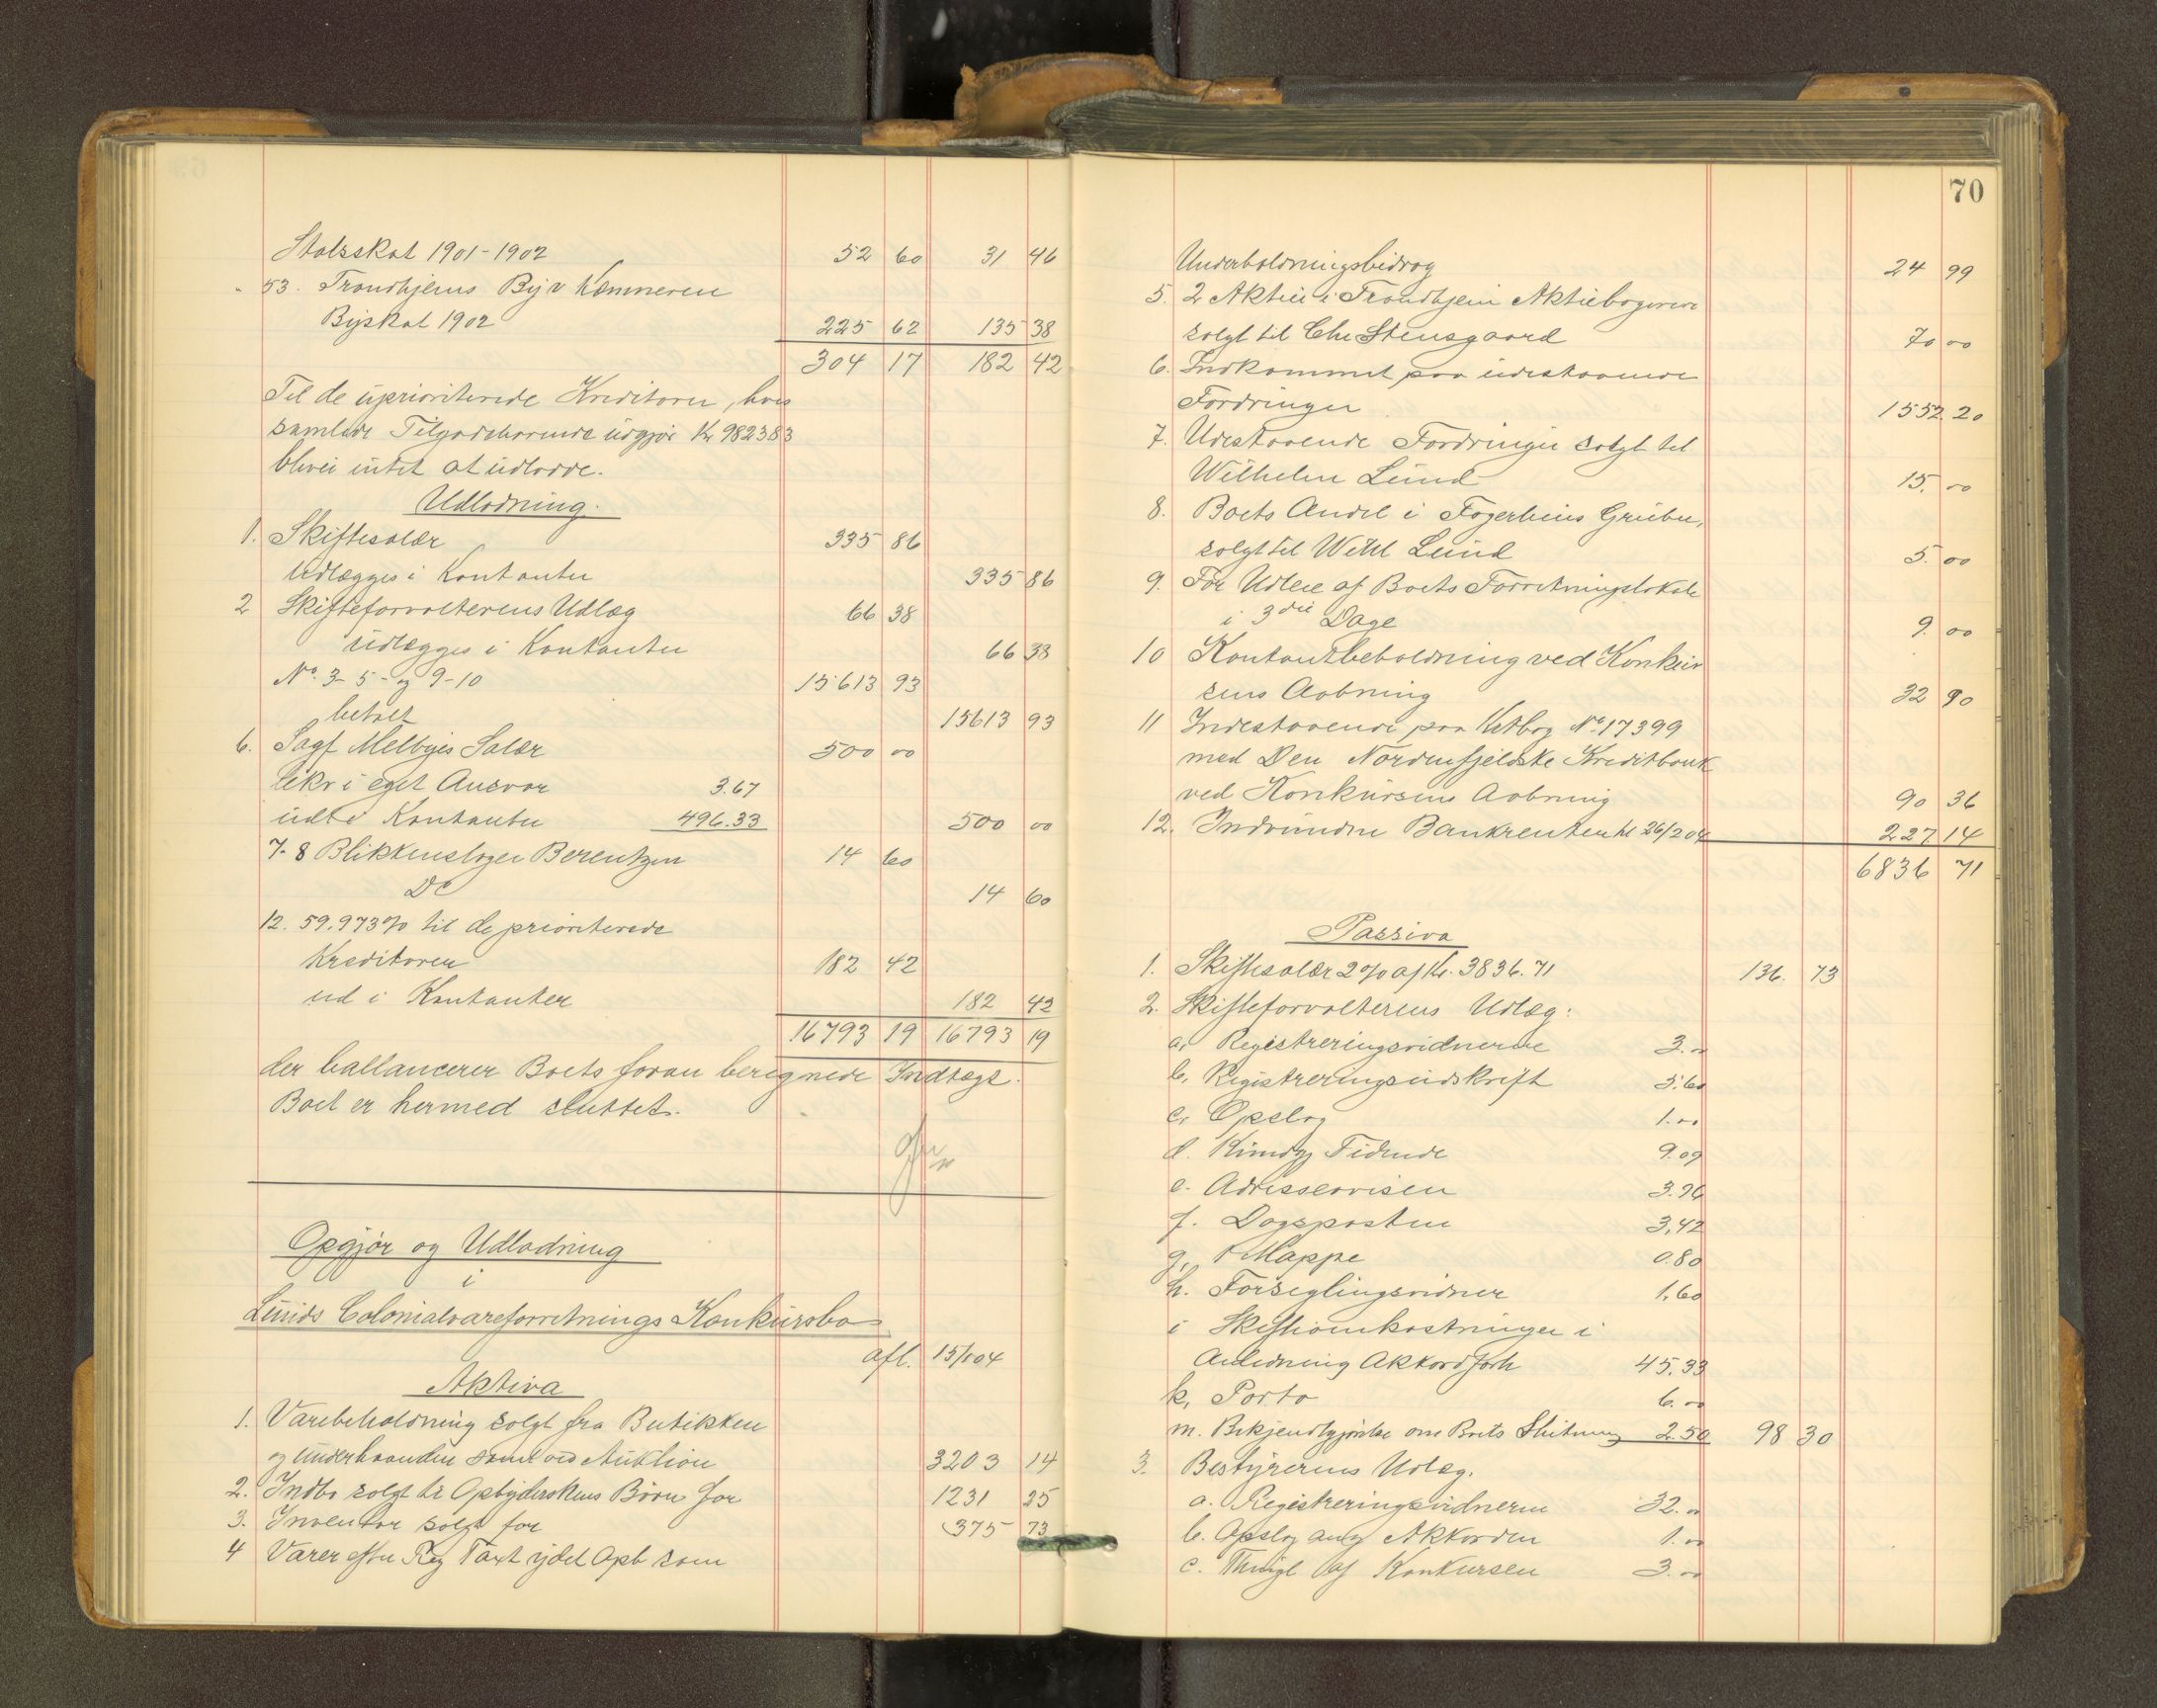 Statsskat 1901-1902 52 60 31 46
" 53. Trondhjems By v Kæmneren
Byskat 1902 225 62 135 38
304 17 182 42
Til de uprioriterede Kreditorer, hvis
samlede Tilgodehavende udgjør Kr 9823 83
blev intet at udlodde.
Udlodning.
1. Skiftesalær 335 86
Udlægges i Kontanter 335 86
2 Skifteforvalterens Udlæg 66 38
udlægges i Kontanter 66 38
No. 3- 5- og 9-10 15613 93
betalt 15613 93
6. Sagf Melbyes Salær 500 00
likv i eget Ansvar 3.67
udl i Kontanter 496.33 500 00
7-8 Blikkenslager Berentzen 14 60
Do 14 60
12. 59.973% til de prioriterede
Kreditorer 182 42
ud i Kontanter 182 42
16793 19 16793 19
der ballancerer Boets foran beregnede Indtægt.
Boet er hermed sluttet.
Opgjør og Udlodning
i
Lunds Colonialvareforretnings Konkursbo
afl. 15/1 04
Aktiva
1. Varebeholdning solgt fra Butikken
og underhaanden samt ved Auktion 3203 14
2. Indbo solgt til Opbyderskens Børn for 1231 25
3. Inventar solgt for 375 73
4 Varer efter Reg Taxt ydet Opb som
70
Underholdningsbidrag 24 99
5. 2 Aktier i Trondhjem Aktiebageri
solgt til Chr Stensgaard 70 00
6. Indkommet paa udestaaende
Fordringer 1552 20
7. Udestaaende Fordringer solgt til
Wilhelm Lund 15. 00
8. Boets Andel i Fagerheims Gruber,
solgt til Wilh Lund 5. 00
9. For Udleie af Boets Forretningslokale
i 3die Dage 9. 00
10 Kontantbeholdning ved Konkur
sens Aabning 32 90
11 Indestaaende paa Ktrbog No 17399
med Den Nordenfjeldske Kreditbank
ved Konkursens Aabning 90 36
12. Indvundne Bankrenter til 26/2 04 227 14
6836 71
Passiva
1. Skiftesalær 2% af Kr. 3836.71 136. 73
2. Skifteforvalterens Udlæg:
a, Registreringsvidnerne 3.00
b, Registreringsudskrift 5.60
c, Opslag 1.00
d. Kundg Tidende 9.09
e. Adresseavisen 3.96
f. Dagsposten 3,42
g, 1 Mappe 0.80
h. Forseglingsvidner 1,60
i Skifteomkostninger i
Anledning Akkordforh 45,33
k, Porto 6.00
m. Bekjendtgjørelse om Boets Slutning 2.50 98 30
3. Bestyrerens Udlæg.
a. Registreringsvidnerne 32.00
b. Opslag ang Akkorden 1.00
c. Thingl af Konkursen 3.00